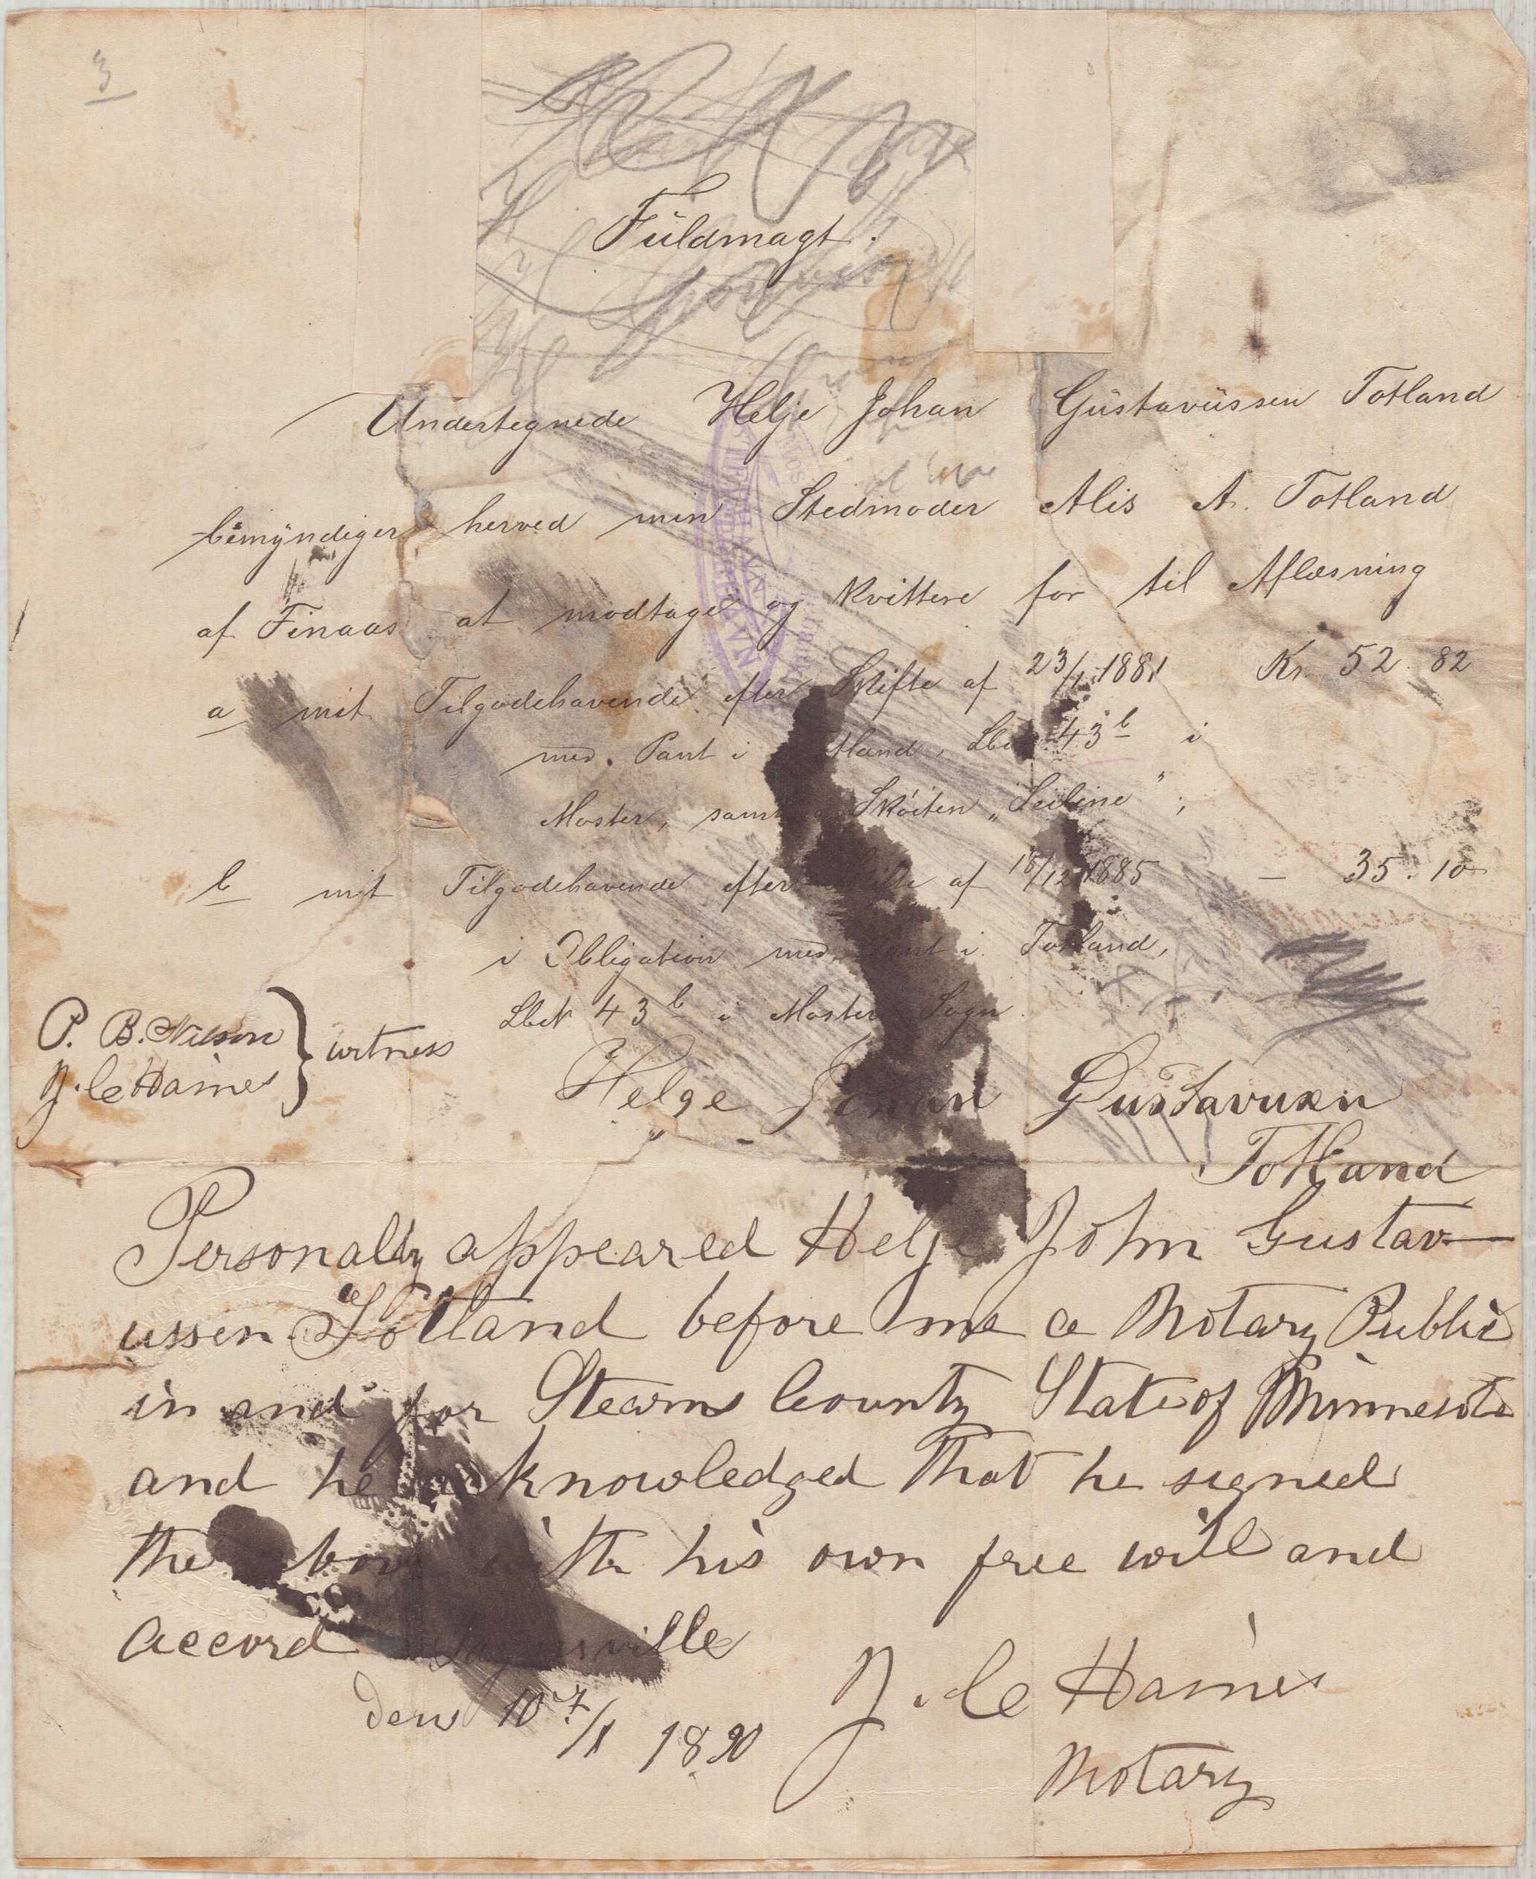 3
Füldmagt.
Undertegnede Helje Johan Güstavüssen Totland
bemÿndiger herved min Stedmoder Alis A. Totland
af Finaas at modtage og kvittere for til Aflæsning
a mit Tilgodehavende efter Skifte af 23/1 1881 Kr. 52.82
med Pant i Totland, Lbn 43 b i
Moster, samt Skøiten „Seline";
b mit Tilgodehavende efter Skifte af 18/12 1885 — 35.10
i Obligation med Pant i Totland,
Lbn 43 b i Moster Sogn.
P. B. Nilson
J. C. Haines } witness
Helge Johan Gustavusen
Totland
Personally appeared Helje John Gustav-
ussen Totland before me a Notary Public
in and for Stearns County State of Minnesota
and he acknowledged That he signed
the above with his own free will and
accord
Den 10 1890
J. C. Haines
Notary